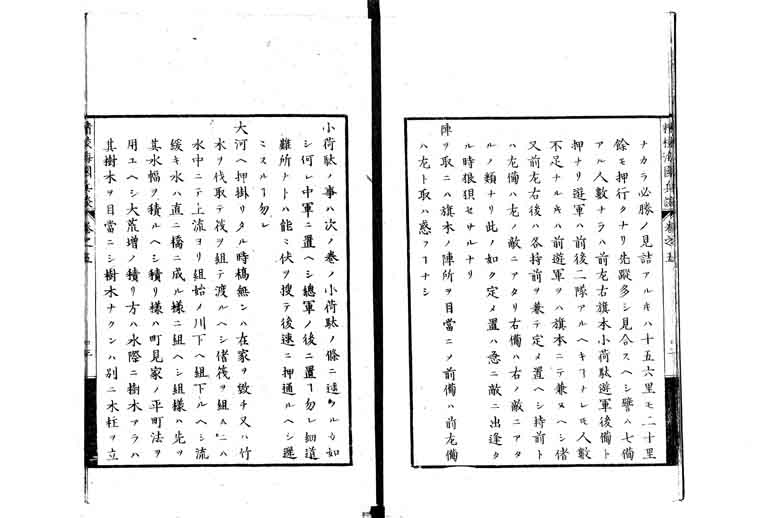 ナカラ必勝ノ見詰アルキハ十五六里モ二十里
餘モ押行クナリ先蹤多シ見合スヘシ譬ハ七備
アル人數ナラハ前左右旗本小荷駄遊軍後備ト
押ナリ遊軍ハ前後二隊アルヘキ𪜈ナレモ人數
不足ナルキハ前遊軍ヲハ旗本ニテ兼ヌヘシ偖
又前左右後ハ各持前ヲ兼テ定メ置ヘシ持前ト
ハ左備ハ左ノ敵ニアタリ右備ハ右ノ敵ニアタ
ルノ類ナリ此ノ如ク定メ置ハ急ニ敵ニ出逢タ
ル時狼狽セサルナリ
陣ヲ取ニハ旗本ノ陣所ヲ目當ニノ前備ハ前左備
ハ左ト取ハ惑フヿナシ
精校海國兵談 卷之五
小荷駄ノ事ハ次ノ卷ノ小荷駄ノ條ニ述クル如
シ何レ中軍ニ置ヘシ總軍ノ後ニ置ヿ勿レ細道
難所ナトハ能ミ伏ヲ搜テ後速ニ押通ルヘシ遲
ミスルヿ勿レ
大河ヘ押掛リタル時橋無ンハ在家ヲ毀チ又ハ竹
木ヲ伐取テ筏ヲ組テ渡ルヘシ偖筏ヲ組ムニハ
水中ニテ上流ヨリ組始メ川下ヘ組下ルヘシ流
緩キ水ハ直ニ橋ニ成ル樣ニ組ヘシ組樣ハ先ヲ
其水幅ヲ積ルヘシ積リ樣ハ町見家ノ平町法ヲ
用ユヘシ大荒增ノ積リ方ハ水際ニ樹木アラハ
其樹木ヲ目當ニシ樹木ナクンハ別ニ木柱ヲ立
精校海國兵談 卷之五